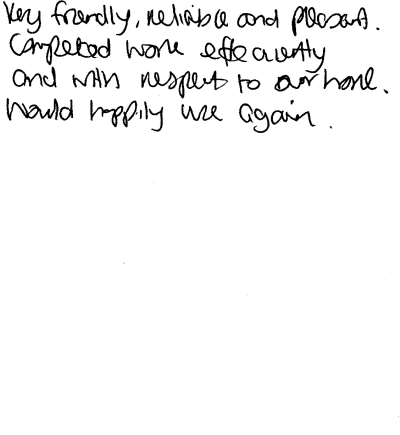 Very friendly, reliable and pleasant.
Completed work efficiently
and with respect to our home.
Would happily use again.